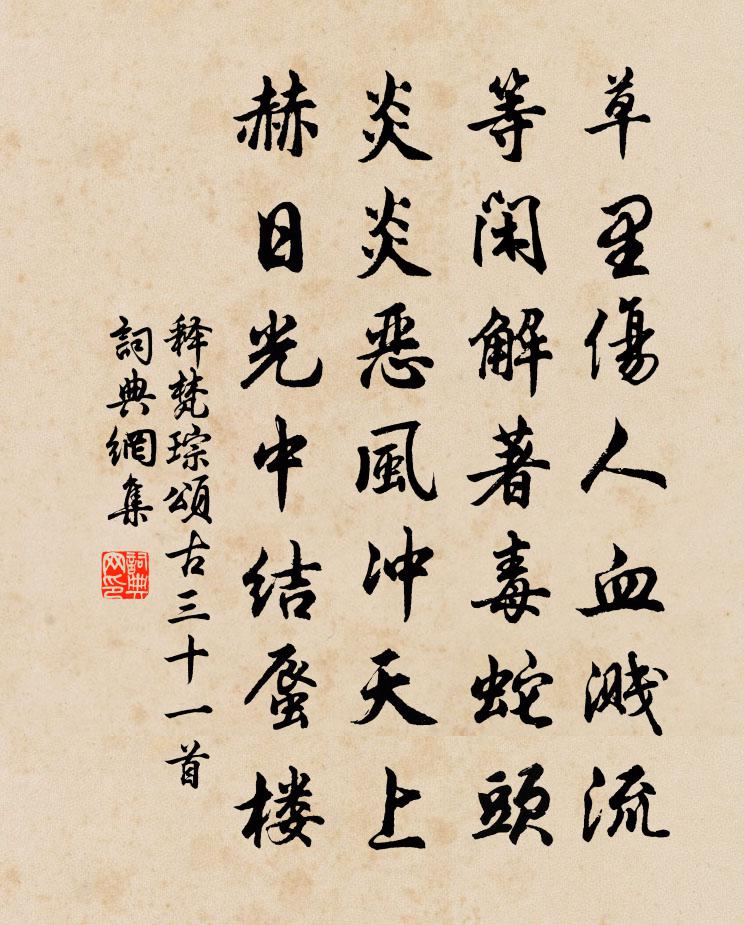 草里傷人血濺流
等閑解著毒蛇頭
炎炎惡風冲天上
赫日光中结蜃楼
释梵琮頌古三十一首
詞典網集
詞典网印